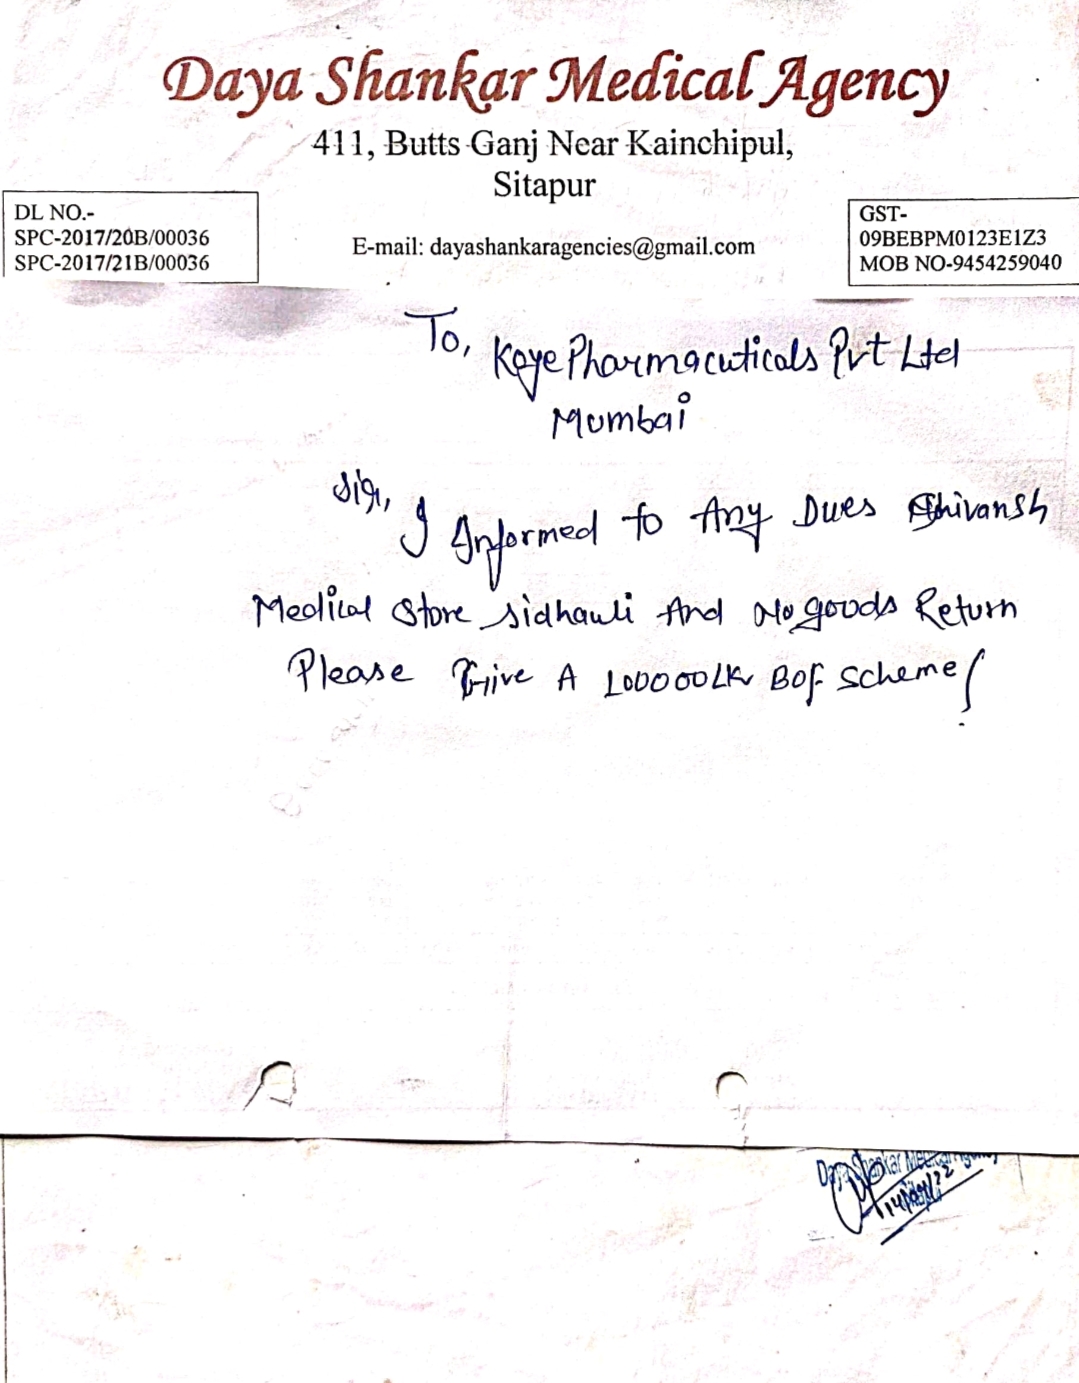 Daya Shankar Medical Agency
411, Butts Ganj Near Kainchipul,
Sitapur
DL NO.-
SPC-2017/20B/00036
SPC-2017/21B/00036
E-mail: dayashankaragencies@gmail.com
GST-
09BEBPM0123E1Z3
MOB NO-9454259040
To,
Kaye Pharmacuticals Pvt Ltd
Mumbai
Sir,
I Informed to Any Dues Shivansh
Medical Store Sidhauli And No goods Return
Please Give A 100000LK BOF Scheme
Daya Shankar Medical Agency